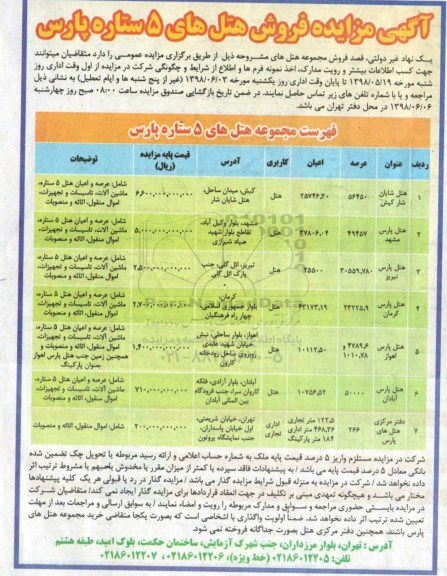 آگهی مزایده فروش هتل های ۵ ستاره پارس
یک نهاد غیر دولتی، قصد فروش مجموعه هتل های مشروحه ذیل از طریق برگزاری مزایده عمومی را دارد متقاضیان میتوانند
جهت کسب اطلاعات بیشتر و رویت مدارک، اخذ نمونه فرم ها و اطلاع از شرایط و چگونگی شرکت در مزایده از اول وقت اداری روز
شنبه مورخه ۱۳۹۸/۰۵/۱۹ تا پایان وقت اداری روز یکشنبه مورخه ۱۳۹۸/۰۶/۰۳ (غیر از پنج شنبه ها و ایام تعطیل) به نشانی ذیل
مراجعه و یا با شماره تلفن های زیر تماس حاصل نمایند. در ضمن تاریخ بازگشایی صندوق مزایده ساعت ۰۸:۰۰ صبح روز چهارشنبه
۱۳۹۸/۰۶/۰۶ در محل دفتر تهران می باشد.
فهرست مجموعه هتل های ۵ ستاره پارس
ردیف عنوان عرصه اعیان کاربری آدرس قیمت پایه مزایده (ریال) توضیحات
۱ هتل شایان شار کیش ۵۶۴۵۰ ۲۵۷۴۶,۲۰ هتل کیش، میدان ساحل، هتل شایان شار ۶,۶۰۰,۰۰۰,۰۰۰,۰۰۰ شامل: عرصه و اعیان هتل ۵ ستاره، ماشین آلات، تاسیسات و تجهیزات، اموال منقول، اثاثه و منصوبات
۲ هتل پارس مشهد ۴۹۴۵۷ ۳۷۸۰۶,۰۴ هتل مشهد، بلوار وکیل آباد، تقاطع بلوار شهید صیاد شیرازی ۵,۰۰۰,۰۰۰,۰۰۰,۰۰۰ شامل: عرصه و اعیان هتل ۵ ستاره، ماشین آلات، تاسیسات و تجهیزات، اموال منقول، اثاثه و منصوبات
۳ هتل پارس تبریز ۳۰۵۵۹,۷۸۰ ۲۵۵۰۰ هتل تبریز، ائل گلی، جنب پارک ائل گلی ۲,۵۰۰,۰۰۰,۰۰۰,۰۰۰ شامل: عرصه و اعیان هتل ۵ ستاره، ماشین آلات، تاسیسات و تجهیزات، اموال منقول، اثاثه و منصوبات
۴ هتل پارس کرمان ۲۳۲۲۵,۹ ۴۳۱۷۳,۱۹ هتل کرمان، بلوار جمهوری اسلامی، چهار راه فرهنگیان ۲,۷۰۰,۰۰۰,۰۰۰,۰۰۰ شامل: عرصه و اعیان هتل ۵ ستاره، ماشین آلات، تاسیسات و تجهیزات، اموال منقول، اثاثه و منصوبات
۵ هتل پارس اهواز ۴۷۸۹,۶ و ۱۰۱۰,۷۸ ۱۰۱۱۲,۵۰ هتل اهواز، بلوار ساحلی، نبش خیابان شهید عابدی روبروی ساحل رودخانه کارون ۱,۴۰۰,۰۰۰,۰۰۰,۰۰۰ شامل: عرصه و اعیان هتل ۵ ستاره، ماشین آلات، تاسیسات و تجهیزات، اموال منقول، اثاثه و منصوبات همچنین زمین جنب هتل پارس اهواز بعنوان پارکینگ
۶ هتل پارس آبادان ۵۰۰۰۰ ۱۰۷۵۶,۵۲ هتل آبادان، بلوار آزادی، فلکه کاروان سرا، جنب فرودگاه بین المللی آبادان ۷۱۰,۰۰۰,۰۰۰,۰۰۰ شامل: عرصه و اعیان هتل ۵ ستاره، ماشین آلات، تاسیسات و تجهیزات، اموال منقول، اثاثه و منصوبات
۷ دفتر مرکزی هتل های پارس ۲۶۶ ۱۲۲,۵ متر تجاری ۴۶۸,۳۶ متر اداری ۱۸۴ متر پارکینگ اداری تجاری تهران، خیابان شریعتی، اول خیابان پاسداران، جنب نمایشگاه پروتون ۲۰۰,۰۰۰,۰۰۰,۰۰۰ شامل: اموال منقول، اثاثه و منصوبات
شرکت در مزایده مستلزم واریز ۵ درصد قیمت پایه ملک به شماره حساب اعلامی و ارائه رسید مربوطه یا تحویل چک تضمین شده
بانکی معادل ۵ درصد قیمت پایه می باشد / به پیشنهادات فاقد سپرده یا کمتر از میزان مقرر یا مخدوش یا مبهم یا مشروط ترتیب اثر
داده نخواهد شد / شرکت در مزایده به منزله قبول شرایط مزایده گذار می باشد / مزایده گذار در رد یا قبولی هر یک کلیه پیشنهادها
مختار می باشد و هیچگونه تعهدی مبنی بر تکلیف در جهت انعقاد قراردادها برای مزایده گذار ایجاد نمی کند/ متقاضیان شرکت
در مزایده بایستی حضوری مراجعه و سوابق و مدارک مربوطه را رویت و امضاء نمایند / به سوابق ارسالی و مراجعات بعد از مهلت
تعیین شده ترتیب اثر داده نخواهد شد. ضمناً اولویت واگذاری با اشخاصی است که بصورت یکجا متقاضی خرید مجموعه هتل های
پارس باشند. همچنین دفتر مرکزی هتل بصورت جداگانه فروخته نمی شود.
آدرس: تهران، بلوار مرزداران، جنب شهرک آزمایش، ساختمان حکمت، بلوک امید، طبقه هشتم
تلفن: ۰۲۱۸۶۰۱۲۲۰۵ (خط ویژه)، ۰۲۱۸۶۰۱۲۲۰۶ ، ۰۲۱۸۶۰۱۲۲۰۷